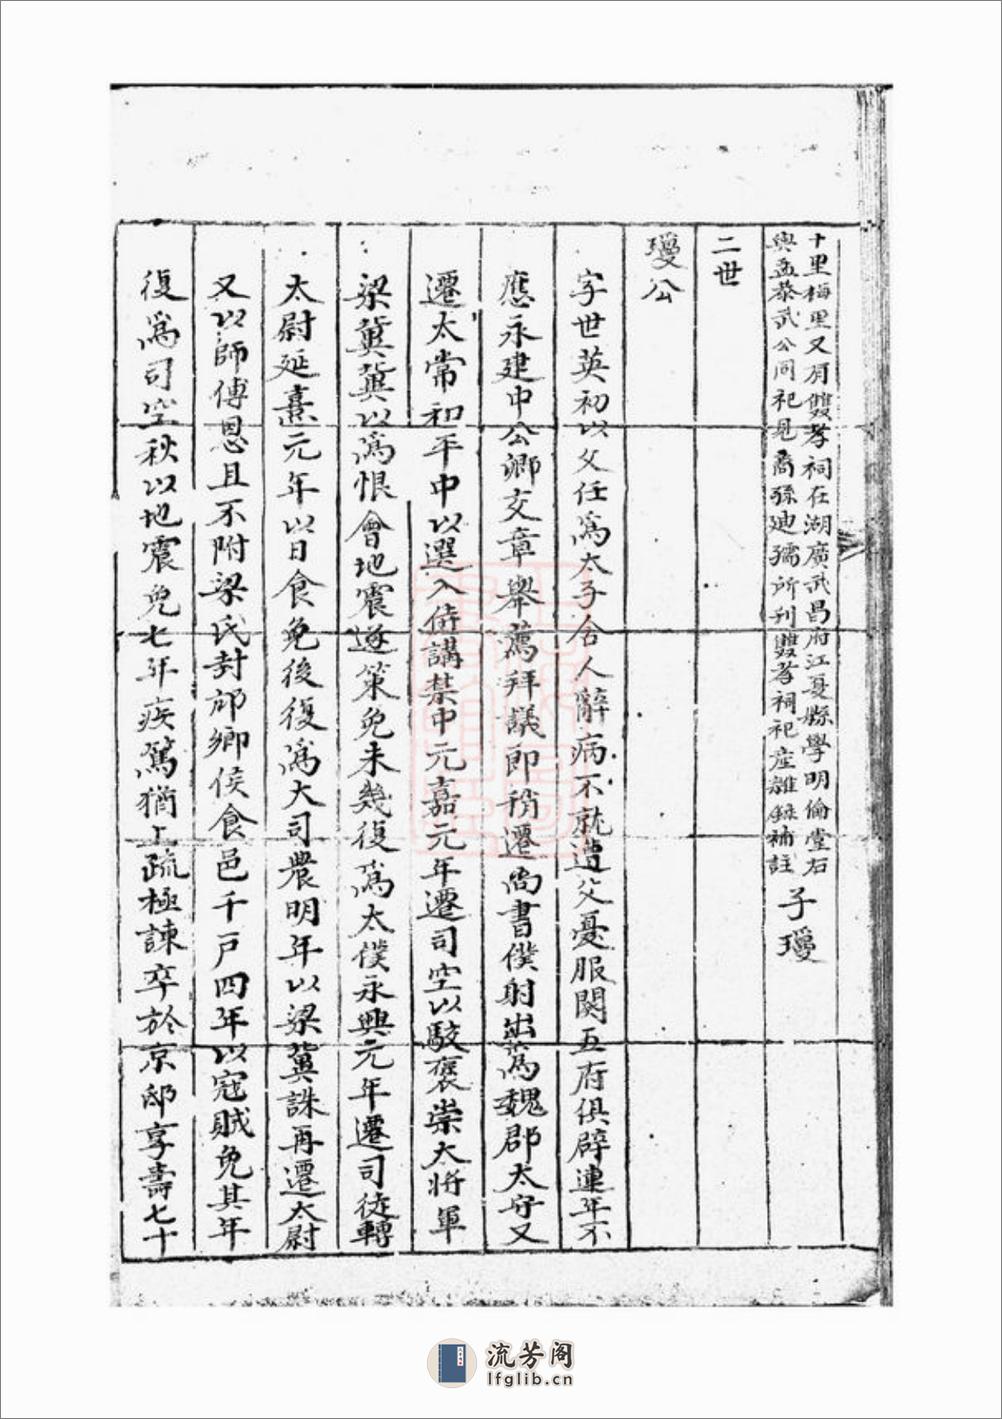 十里梅里又有雙孝祠在湖廣武昌府江夏縣學明倫堂右
與孟恭武公同祀見裔孫迪孺所刊雙孝祠祀産雜錄補註
子瓊
二世
瓊公
字世英初以父任爲太子舍人辭病不就遭父憂服闋五府俱辟連年不
應永建中公卿交章舉薦拜議郎稍遷尚書僕射出爲魏郡太守又
遷太常和平中以選入侍講禁中元嘉元年遷司空以駁褒崇大將軍
梁冀冀以爲恨會地震遂策免未幾復爲太僕永興元年遷司徒轉
太尉延熹元年以日食免後復爲大司農明年以梁冀誅再遷太尉
又以師傅恩且不附梁氏封邟鄉侯食邑千戸四年以寇賊免其年
復爲司空秋以地震免七年疾篤猶上疏極諫卒於京邸享壽七十
流芳阁
lfglib.cn